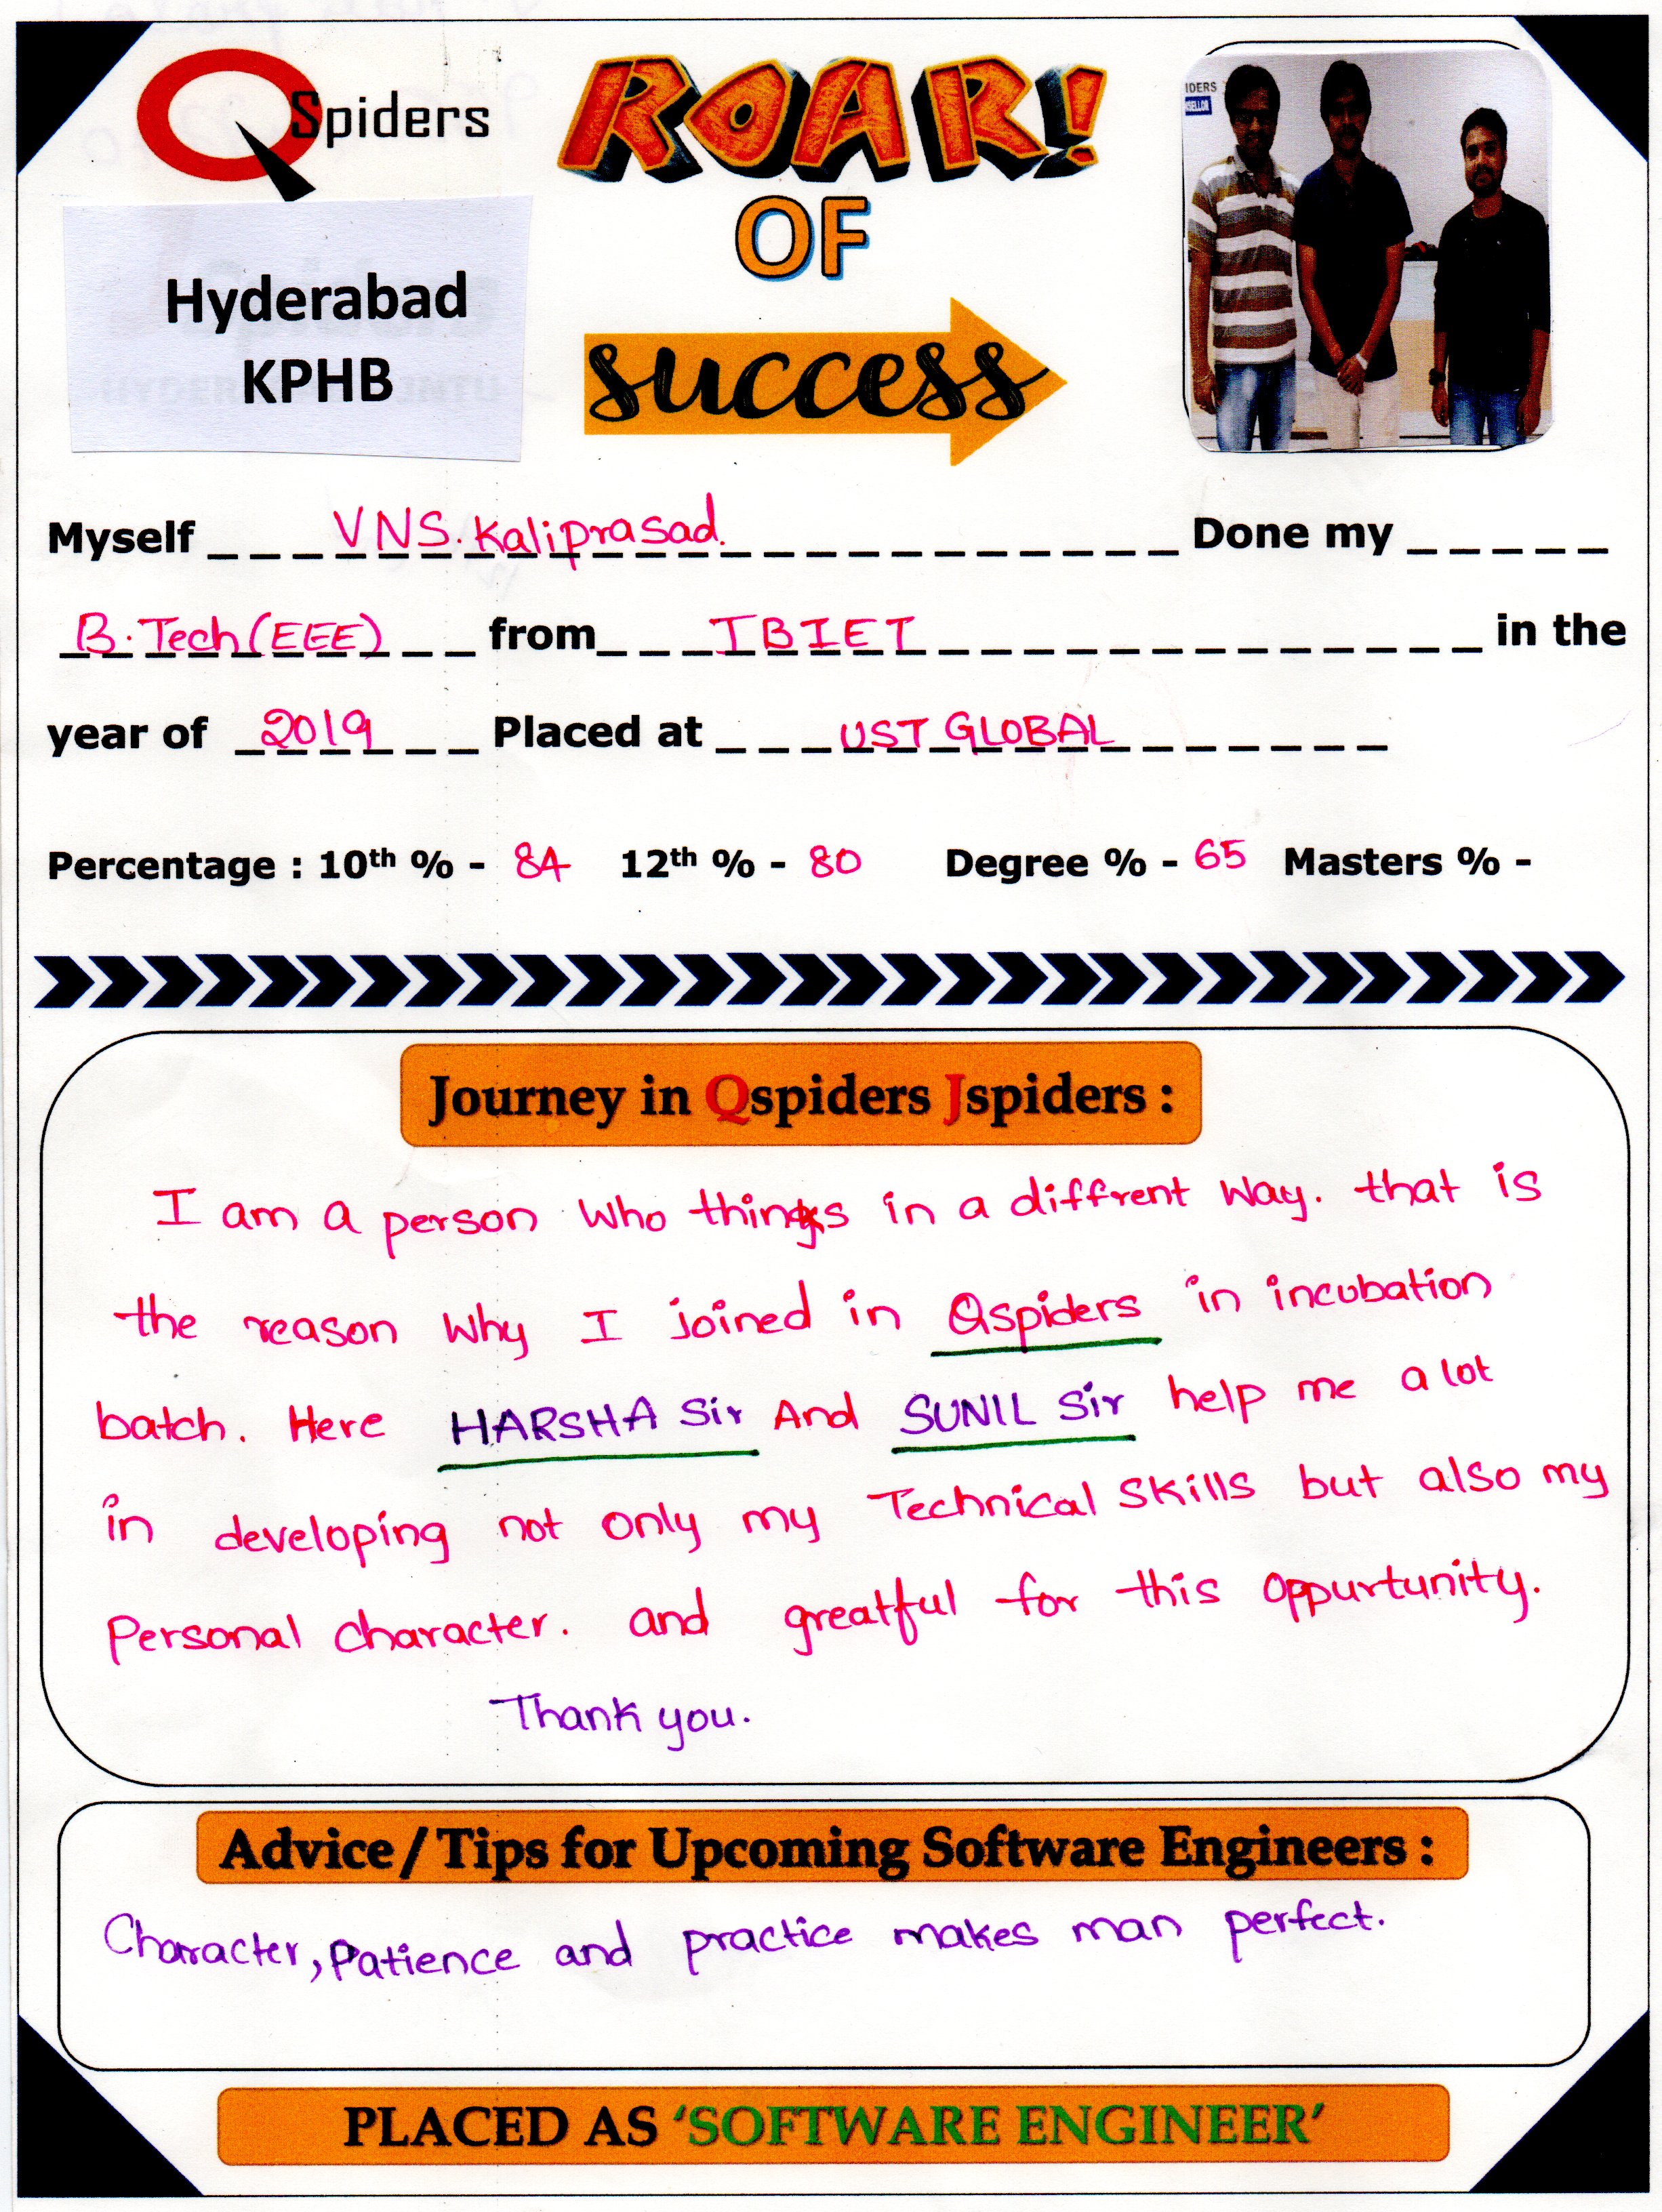 QSpiders
ROAR!
OF
success
IDERS
Hyderabad
KPHB
Myself VNS. Kaliprasad. Done my
B.Tech (EEE) from TBIET in the
year of 2019 Placed at UST GLOBAL
Percentage : 10th % - 84 12th % - 80 Degree % - 65 Masters % -
Journey in Qspiders Jspiders :
I am a person who things in a diffrent way. that is
the reason why I joined in Qspiders in incubation
batch. Here HARSHA Sir And SUNIL Sir help me a lot
in developing not only my Technical skills but also my
Personal character. and greatful for this oppurtunity.
Thank you.
Advice / Tips for Upcoming Software Engineers :
Character, Patience and practice makes man perfect.
PLACED AS ‘SOFTWARE ENGINEER’